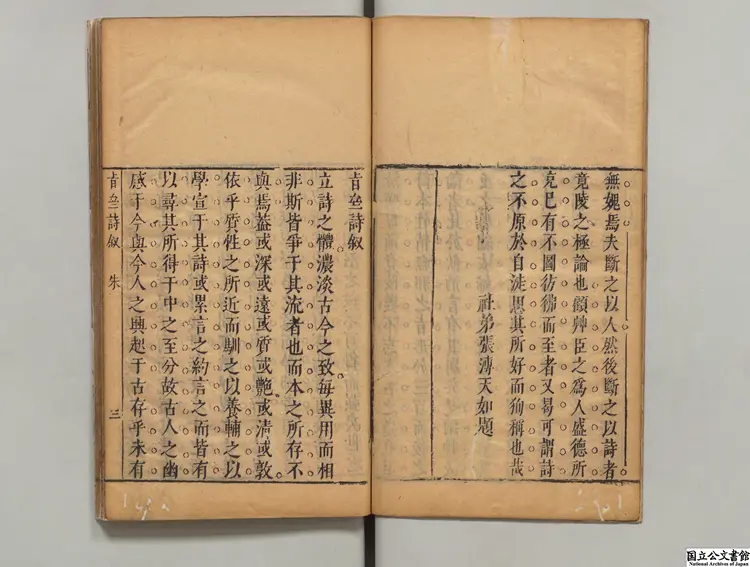 無媿焉夫斷之以人然後斷之以詩者
竟陵之極論也顧艸臣之為人盛德所
竟已有不圖彷彿而至者又曷可謂詩
之不原於自徒思其所好而狥稱也哉
社弟張溥天如題
詩叙
立詩之體濃淡古今之致每異用而相
非斯皆爭于其流者也而本之所存不
與焉蓋或深或遠或質或艷或清或敦
依乎質性之所近而馴之以養輔之以
學宣于其詩或累言之約言之而皆有
以尋其所得于中之至分故古人之幽
感于今與今人之興起于古存乎未有
詩叙
朱
三
国立公文書館
National Archives of Japan